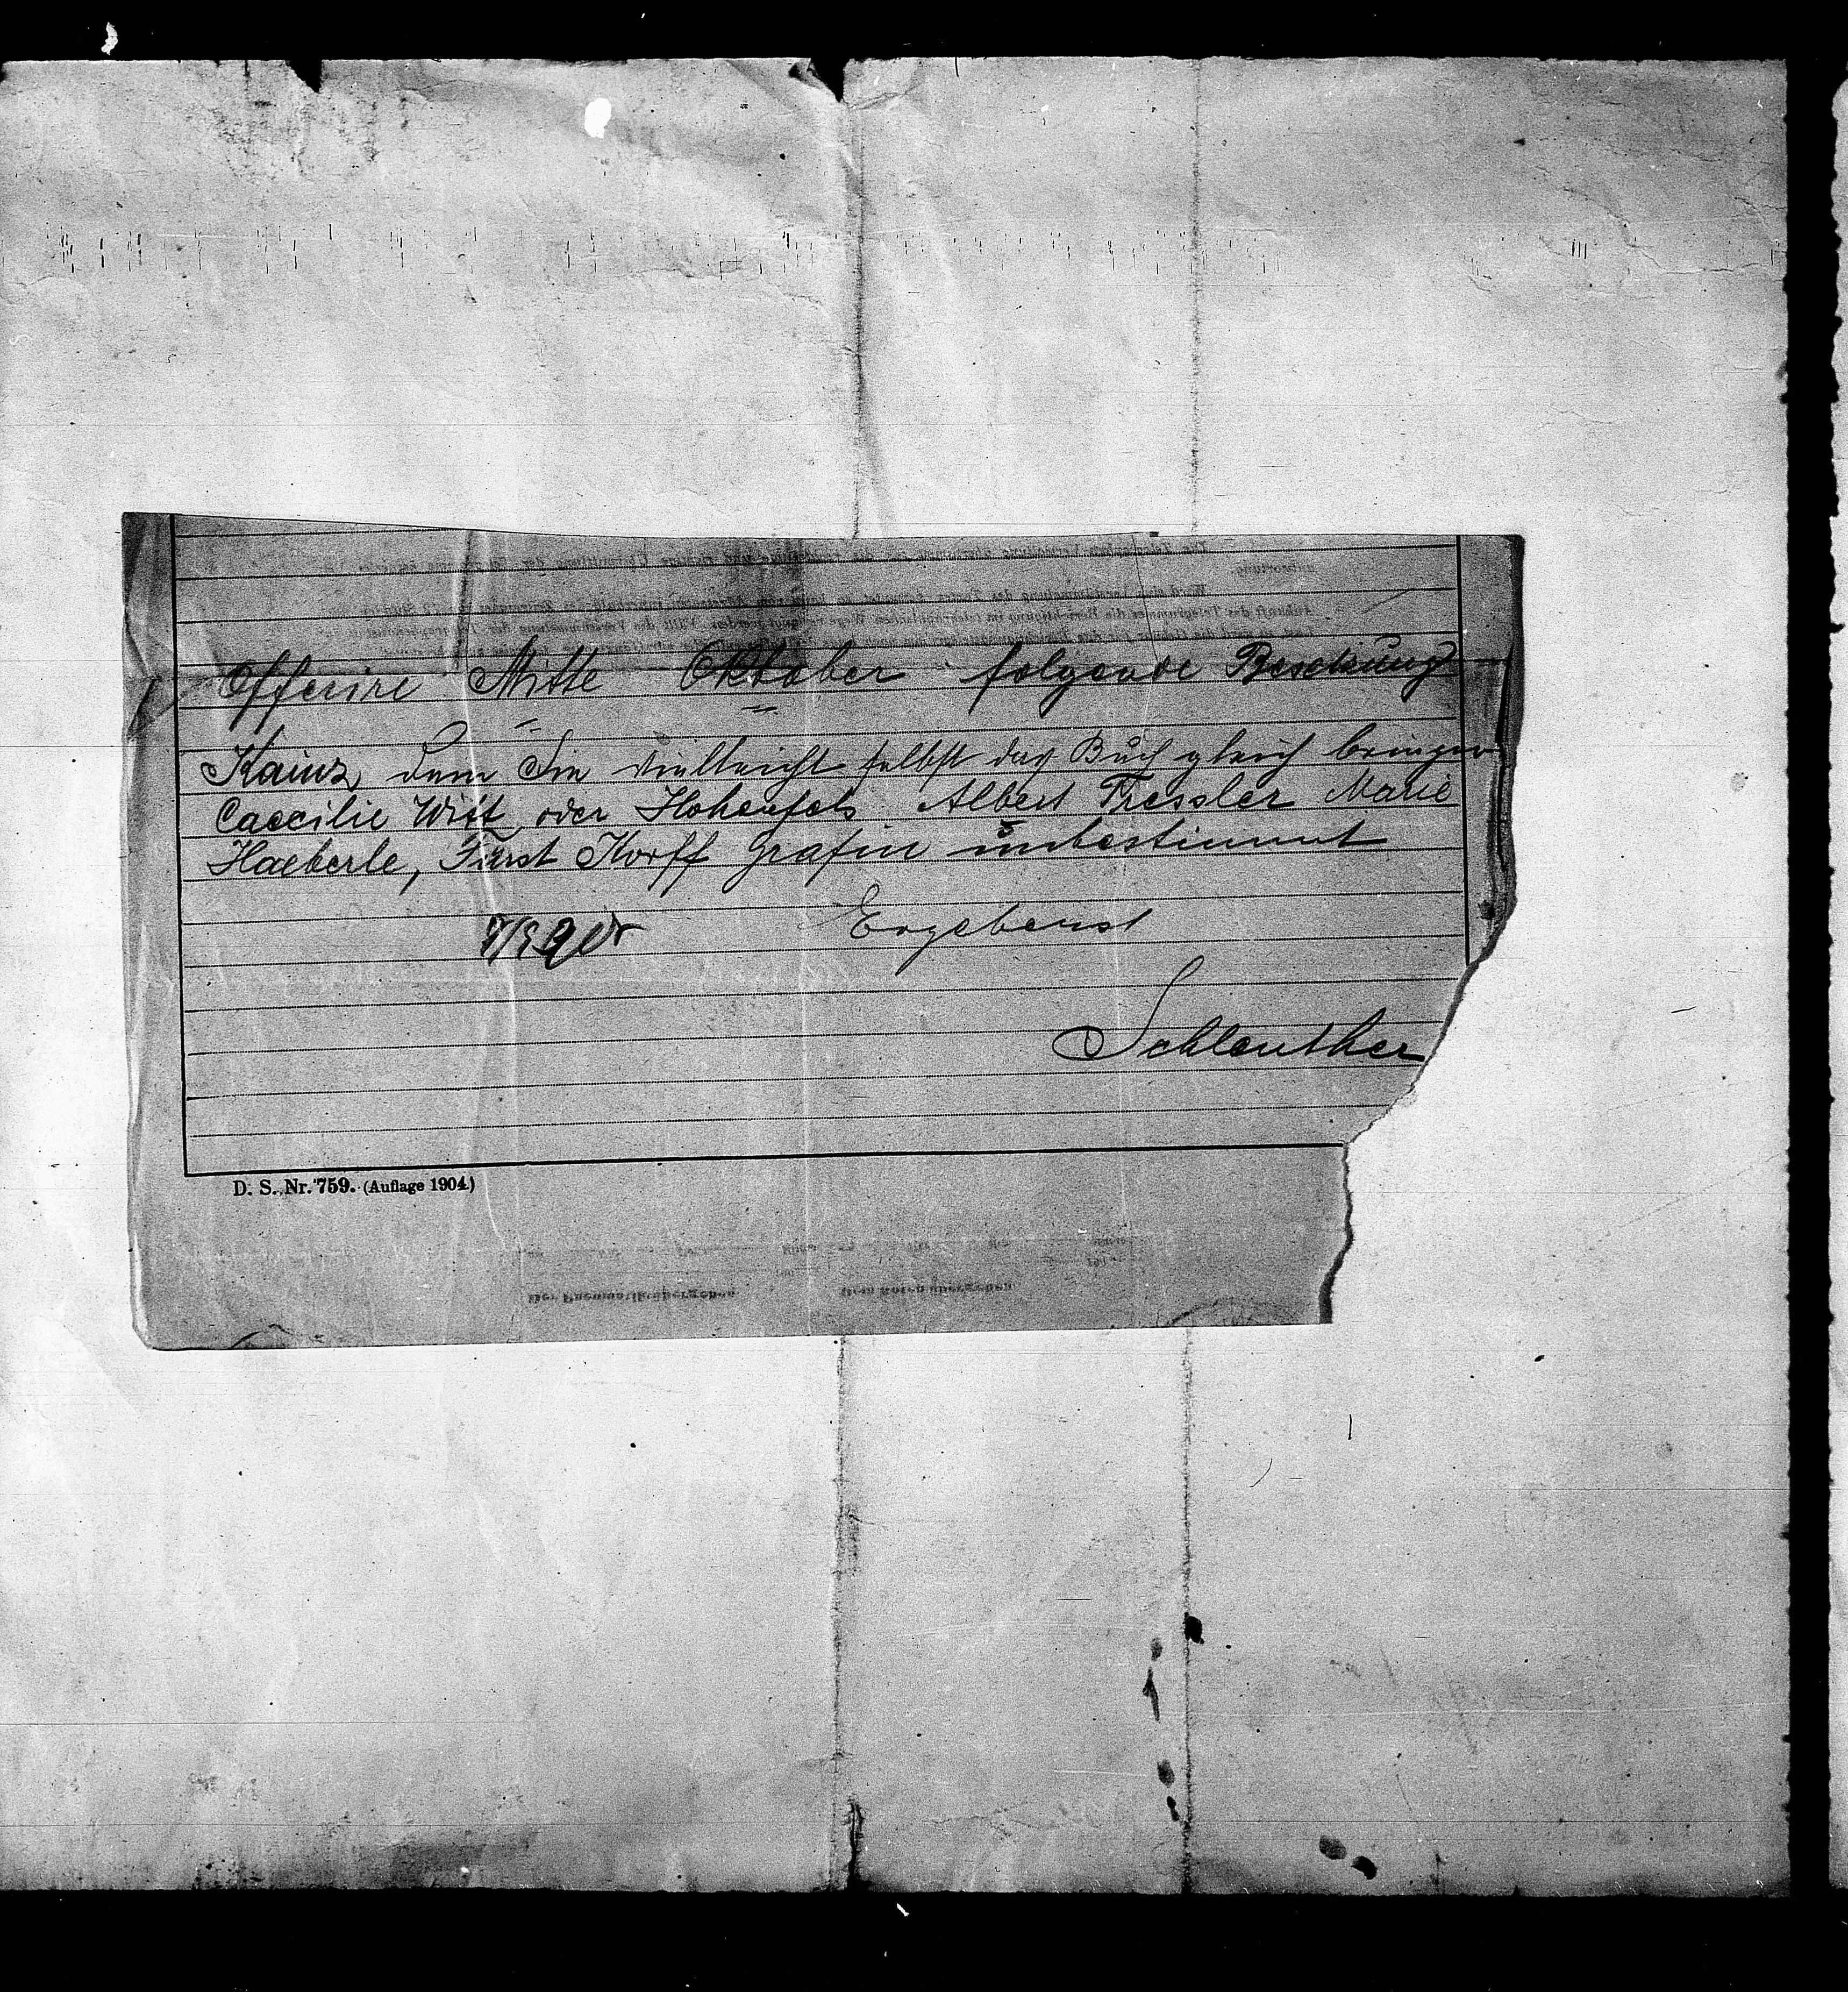 Offerire Mitte Oktober folgende Besetzung
Kainz dem Sie vielleicht selbst das Buch gleich bringen
Caecilie Witt oder Hohenfels Albert Tressler Marie
Haeberle, Fürst Korff Gräfin unbestimmt
Ergebenst
Schlenther
D. S. Nr. 759. (Auflage 1904.)